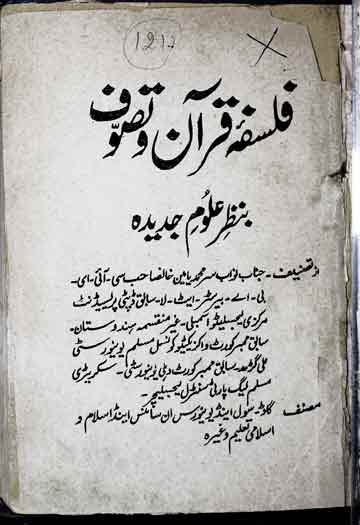 1212
فلسفۂ قرآن و تصوّف
بنظرِ علُومِ جدیدہ
از تصنیف۔ جناب نواب سر محمد یامین خانصاحب سی۔ آئی۔ ای۔
بی۔ اے۔ بیرسٹر۔ ایٹ۔ لا۔ سابق ڈپٹی پریسیڈنٹ
مرکزی لیجسلیٹو اسمبلی۔ غیر منقسمہ ہندوستان۔
سابق ممبر کورٹ و اگزیکٹو کونسل مسلم یونیورسٹی
علی گڑھ۔ سابق ممبر کورٹ دہلی یونیورسٹی۔ سکریٹری
مسلم لیگ پارٹی سنٹرل لیجسلیچر۔
مصنف گاڈ۔ سول اینڈ یونیورس ان سائنس اینڈ اسلام و
اسلامی تعلیم وغیرہ